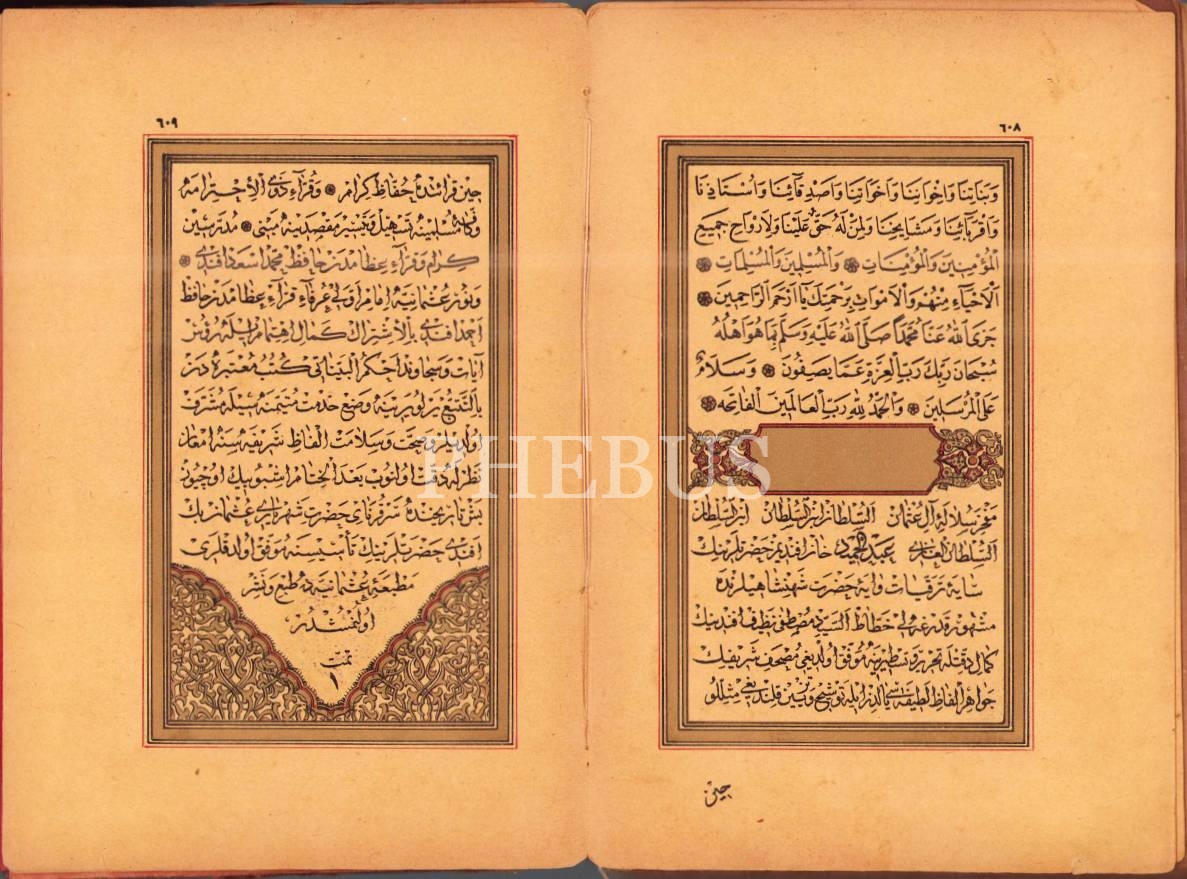 ٦٠٨
وَبَنَاتِنَا وَاِخْوَانِنَا وَاَخَوَاتِنَا وَاَصْدِقَائِنَا وَاُسْتَاذِنَا
وَاَقْرِبَائِنَا وَمَشَايِخِنَا وَلِمَنْ لَهُ حَقٌّ عَلَيْنَا وَلِاَرْوَاحِ جَمِيعِ
الْمُؤْمِنِينَ وَالْمُؤْمِنَاتِ وَالْمُسْلِمِينَ وَالْمُسْلِمَاتِ
اَلْاَحْيَاءِ مِنْهُمْ وَالْاَمْوَاتِ بِرَحْمَتِكَ يَا اَرْحَمَ الرَّاحِمِينَ
جَزَى اللهُ عَنَّا مُحَمَّدًا صَلَّى اللهُ عَلَيْهِ وَسَلَّمَ بِمَا هُوَ اَهْلُهُ
سُبْحَانَ رَبِّكَ رَبِّ الْعِزَّةِ عَمَّا يَصِفُونَ وَسَلَامٌ
عَلَى الْمُرْسَلِينَ وَالْحَمْدُ لِلهِ رَبِّ الْعَالَمِينَ الْفَاتِحَه
مفخر سلالۀ آل عثمان السلطان ابن السلطان ابن السلطان
السلطان الغازى عبد الحميد خان افنديمز حضرتلرينك
سايۀ ترقيات وايۀ حضرت شهنشاهيلرنده
مشهور قدرغه لى خطاط السيد مصطفى نظيف افندينك
كمال دقتله تحرير و تسطيرينه موفق اولديغى مصحف شريفك
جواهر الفاظ لطيفه سى يالديز ايله توشيح وتزيين قلنديغى مثللو
جين
٦٠٩
حفاظ كرام وقراء ذوى الاحترامه
وكافۀ مسلمينه تسهيل وتيسير مقصدينه مبنى مدرسين
كرام وقراء عظامدن حافظ محمد اسعد افندى
ونور عثمانيه امام اولى عرفاء قراء عظامدن حافظ
احمد افندى بالاشتراك كمال اهتمام ايله رؤس
آيات وسجاوند احكم البيناتى كتب معتبره دن
بالتتبع يرلويرينه وضع خدمت متيمنه سيله مشرف
اولديلر وصحت وسلامت الفاظ شريفه سنه امعان
نظرله دقت اولنوب بعد الختام اشبو بيك اوچيوز
بش تاريخنده سرقرناى حضرت شهريارى عثمان بك
افندى حضرتلرينك تأسيسنه موفق اولدقلرى
مطبعۀ عثمانيه ده طبع ونشر
اولنمشدر
تمت
١
PHEBUS